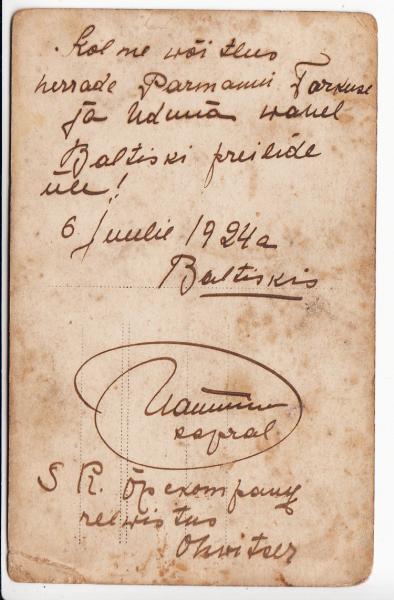 Kolme wõitlus
herrade Parmanni Tarkuse
ja Udumä wahel
Baltiski preilide
üle!
6 Juulil 1924a
Baltiskis
kapral
S R. õp. kompany
relwistus
Ohwitser